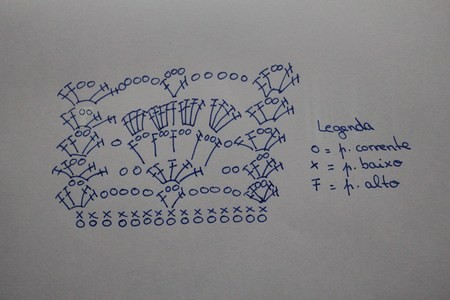 Legenda
o = p. corrente
x = p. baixo
Ŧ = p. alto